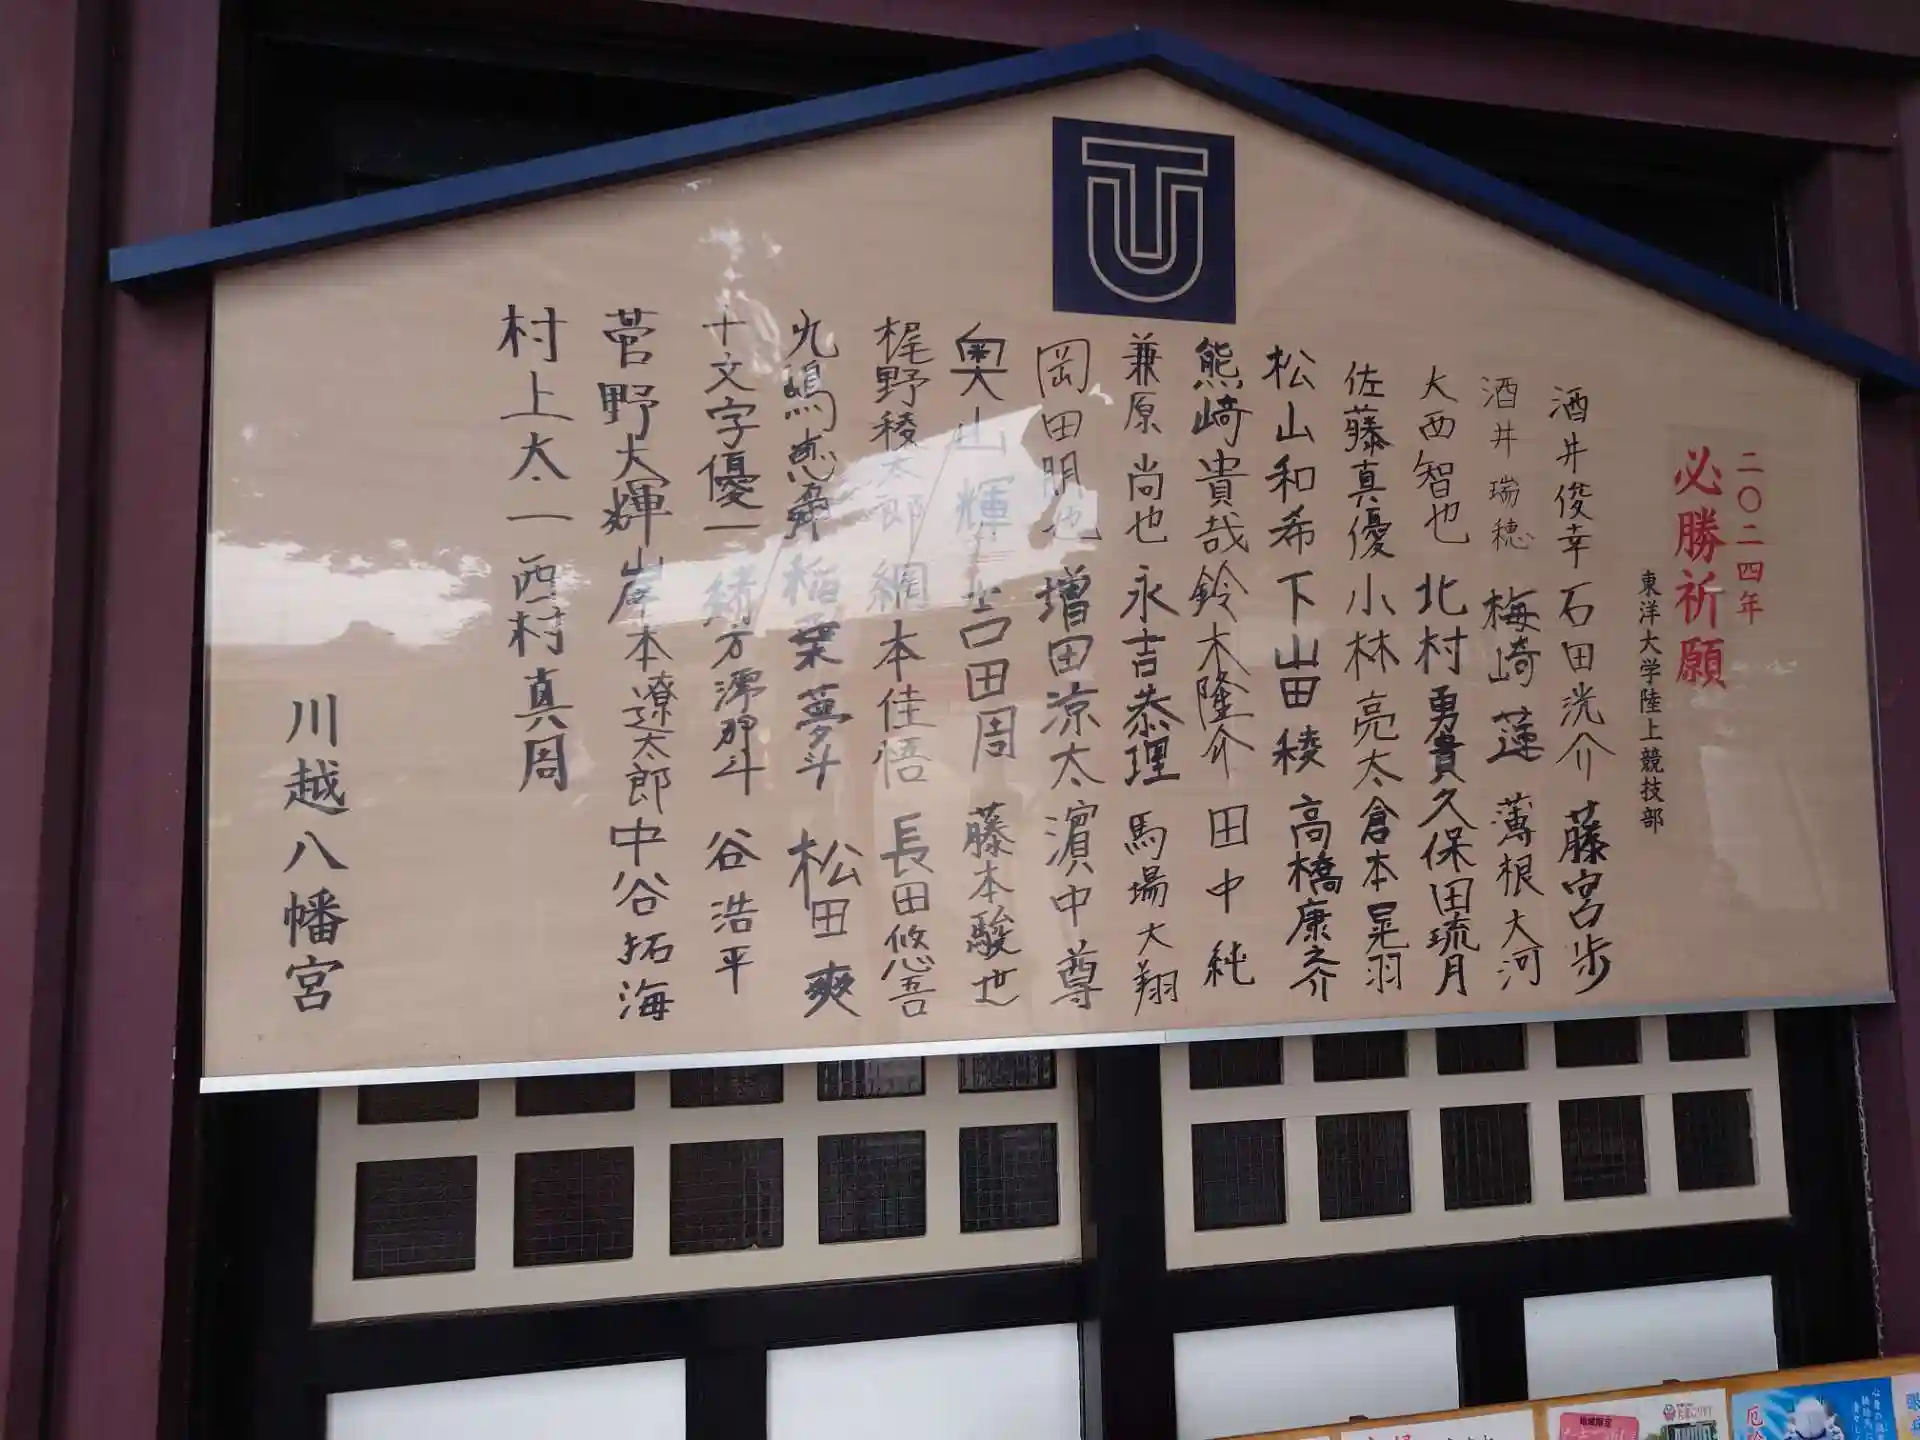 二〇二四年
必勝祈願
東洋大学陸上競技部
酒井俊幸 石田滉介 藤宮歩
酒井瑞穂 梅崎蓮 薄根大河
大西智也 北村勇貴 久保田琉月
佐藤真優 小林亮太 倉本晃羽
松山和希 下山田稜 高橋康之介
熊崎貴哉 鈴木隆介 田中純
兼原尚也 永吉恭理 馬場大翔
岡田朋也 増田涼太 濵中尊
奥山輝 吉田周 藤本駿世
梶野稜太郎 網本佳悟 長田悠吾
九嶋恵舜 稲葉夢斗 松田爽
十文字優一 緒方澪那斗 谷浩平
菅野大輝 岸本遼太郎 中谷拓海
村上太一 西村真周
川越八幡宮
TU